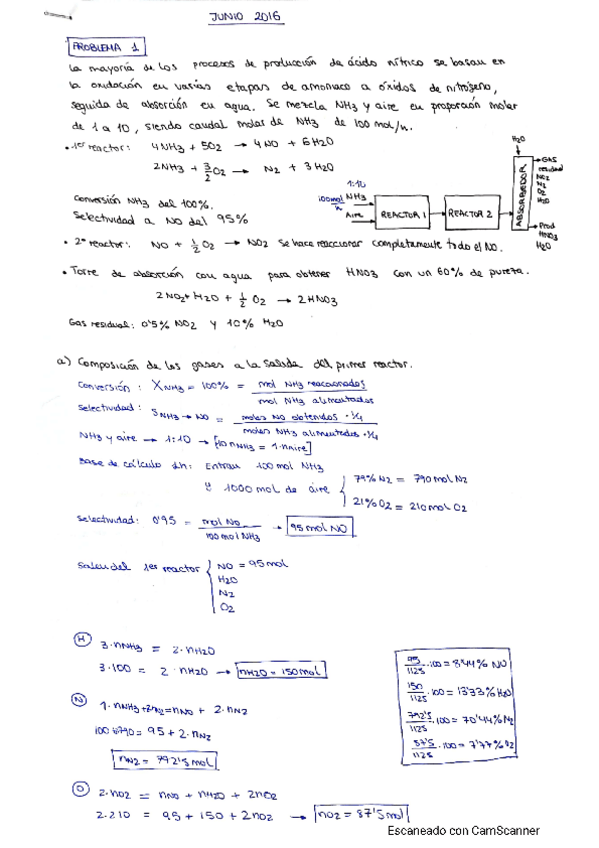 JUNIO 2016
PROBLEMA 1
La mayoría de los procesos de producción de ácido nítrico se basan en
la oxidación en varias etapas de amoniaco a óxidos de nitrógeno,
seguida de absorción en agua. Se mezcla NH3 y aire en proporción molar
de 1 a 10, siendo caudal molar de NH3 de 100 mol/h.
• 1er reactor: 4NH3 + 5O2 → 4NO + 6H2O
2NH3 + 3/2 O2 → N2 + 3H2O
Conversión NH3 del 100%.
Selectividad a NO del 95%
1:10
100 mol/h NH3
Aire
REACTOR 1
REACTOR 2
ABSORBEDOR
H2O
GAS
residual
NO2
N2
O2
H2O
Prod
HNO3
H2O
• 2º reactor: NO + 1/2 O2 → NO2 Se hace reaccionar completamente todo el NO.
• Torre de absorción con agua para obtener HNO3 con un 60% de pureza.
2NO2 + H2O + 1/2 O2 → 2HNO3
Gas residual: 0'5% NO2 y 10% H2O
a) Composición de los gases a la salida del primer reactor.
Conversión: XNH3 = 100% = mol NH3 reaccionados / mol NH3 alimentados
Selectividad: SNH3 → NO = moles NO obtenidos · 1/4 / moles NH3 alimentados · 1/4
NH3 y aire → 1:10 → [10 nNH3 = 1·nAire]
Base de cálculo 1h: Entran 100 mol NH3
y 1000 mol de aire { 79% N2 = 790 mol N2
21% O2 = 210 mol O2
Selectividad: 0'95 = mol NO / 100 mol NH3 → 95 mol NO
Salen del 1er reactor { NO = 95 mol
H2O
N2
O2
(H) 3·nNH3 = 2·nH2O
3·100 = 2·nH2O → nH2O = 150 mol
(N) 1·nNH3 + 2nN2 = nNO + 2·nN2
100 + 790 = 95 + 2·nN2
nN2 = 792'5 mol
(O) 2·nO2 = nNO + nH2O + 2nO2
2·210 = 95 + 150 + 2nO2 → nO2 = 87'5 mol
95/1125 · 100 = 8'44% NO
150/1125 · 100 = 13'33% H2O
792'5/1125 · 100 = 70'44% N2
87'5/1125 · 100 = 7'77% O2
Escaneado con CamScanner